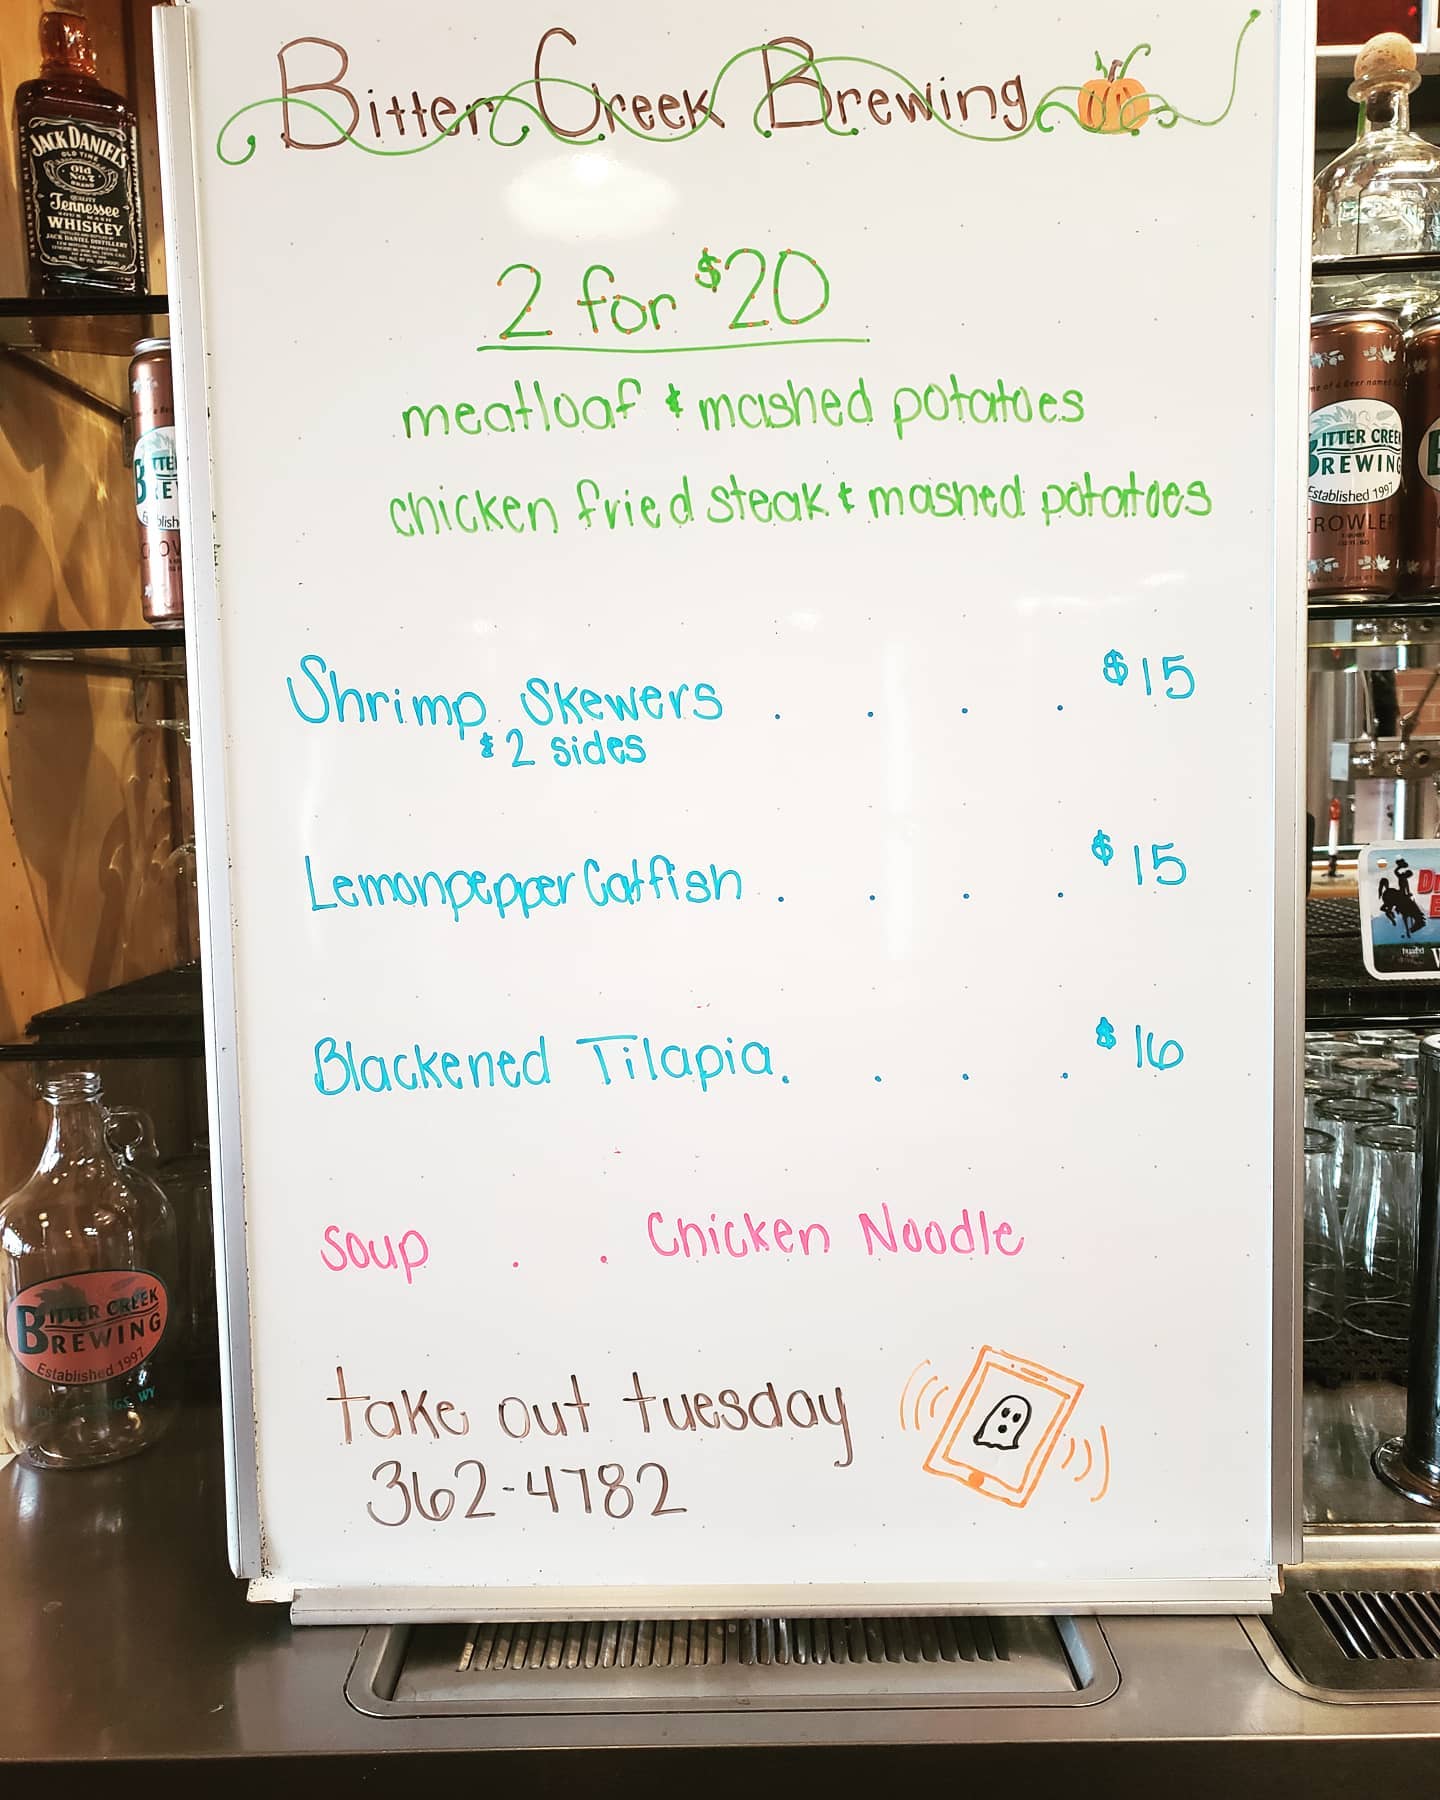 Bitter Creek Brewing
2 for $20
meatloaf & mashed potatoes
chicken fried steak & mashed potatoes
Shrimp Skewers . . . . $15
& 2 sides
Lemonpepper Catfish . . . . $15
Blackened Tilapia . . . . $16
Soup . . Chicken Noodle
take out tuesday
362-4782
JACK DANIEL'S
OLD TIME
Old
No.7
BRAND
QUALITY
Tennessee
SOUR MASH
WHISKEY
ITTER CREE
BREWING
Established 1997
CROWLE
SILVER
BITTER CREEK
BREWING
Established 1997